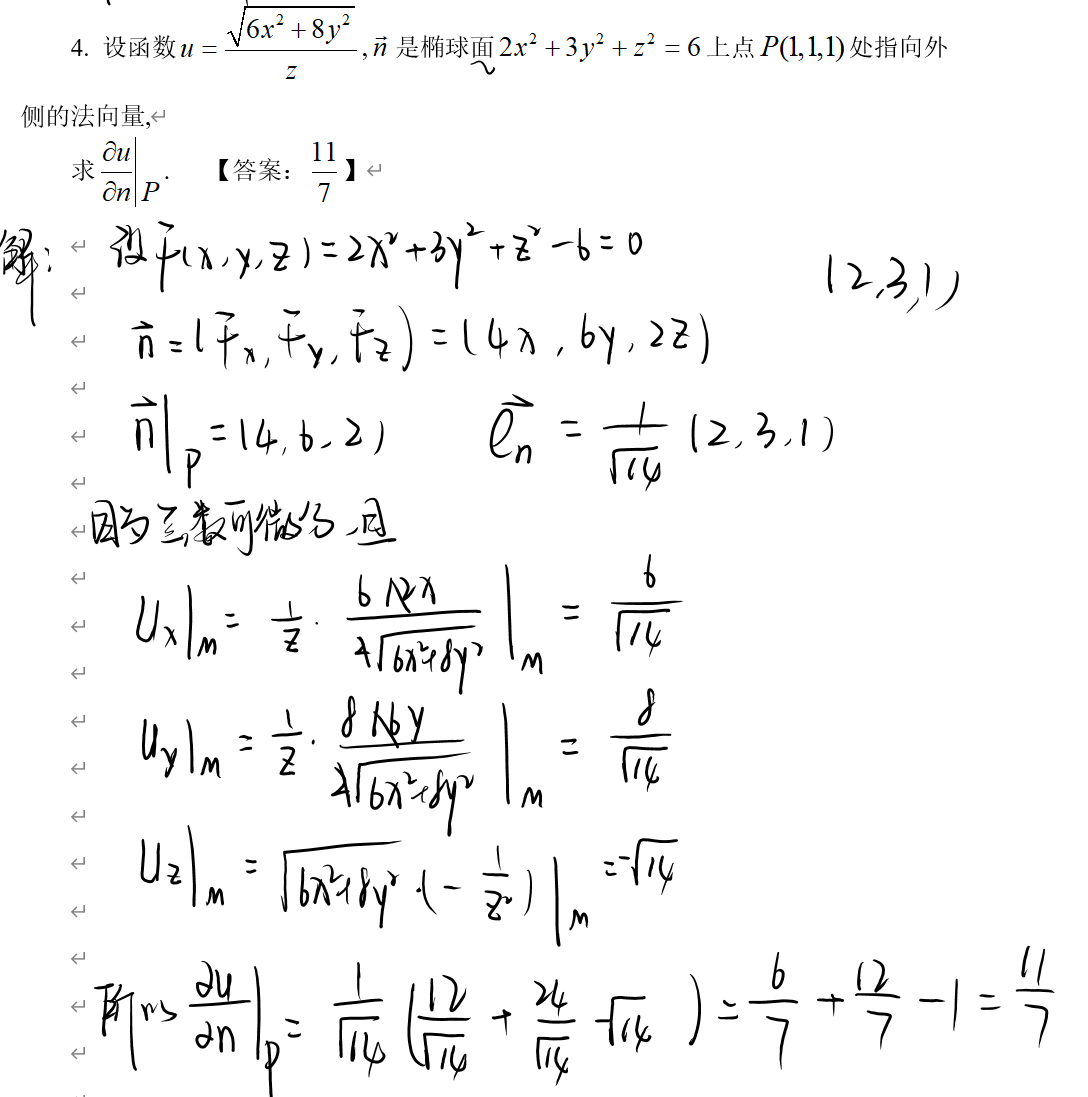 4. 设函数 u = √(6x²+8y²)/z , n⃗ 是椭球面 2x²+3y²+z²=6 上点 P(1,1,1) 处指向外
侧的法向量,
求 ∂u/∂n|P . 【答案: 11/7】
解: 设F(x,y,z)=2x²+3y²+z²-6=0
(2,3,1)
n⃗=(Fx,Fy,Fz)=(4x,6y,2z)
n⃗|P=(4,6,2) e⃗n = 1/√14 (2,3,1)
因为函数可微分,且
Ux|M = 1/z · 6×2x/2√(6x²+8y²) |M = 6/√14
Uy|M = 1/z · 8×6y/2√(6x²+8y²) |M = 8/√14
Uz|M = √(6x²+8y²)·(-1/z²)|M = -√14
所以 ∂u/∂n|P = 1/√14 (12/√14 + 24/√14 -√14) = 6/7 + 12/7 - 1 = 11/7